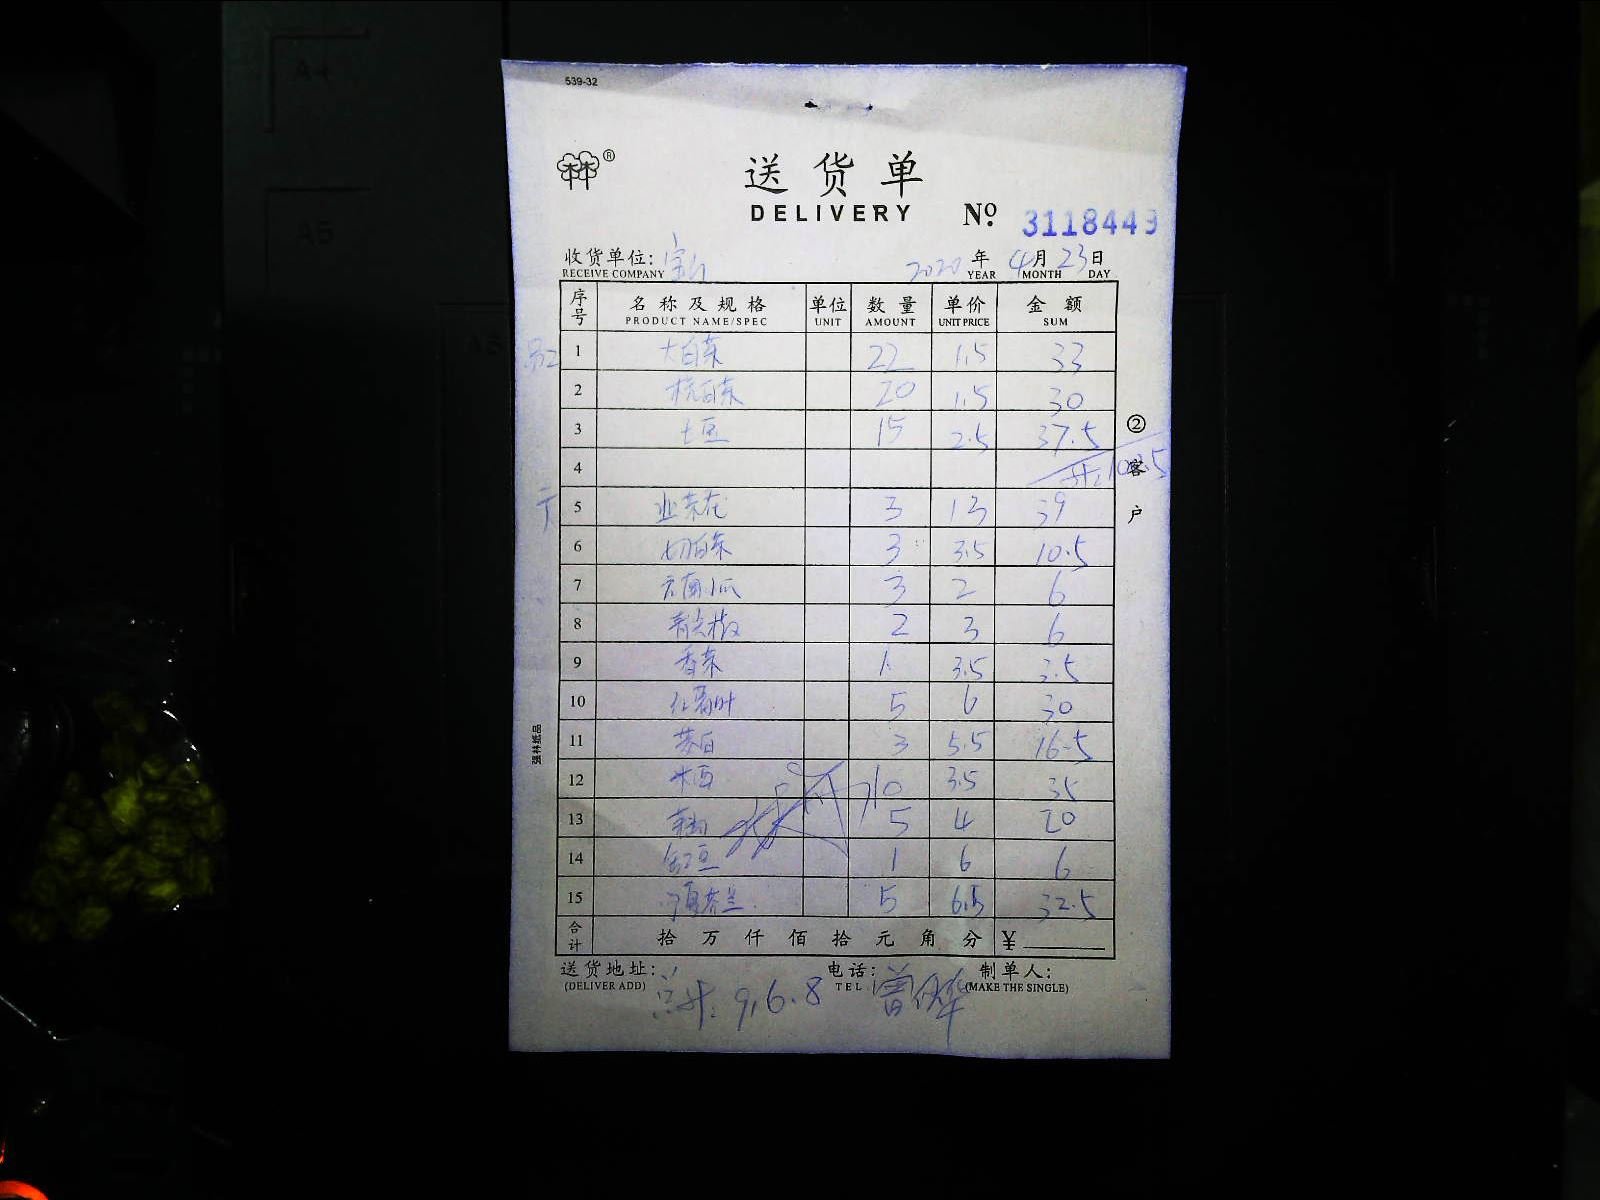 539-32
送货单
DELIVERY
№ 3118449
收货单位: 年 月 日
RECEIVE COMPANY 2020 YEAR 4 MONTH 23 DAY
序号 名称及规格 单位 数量 单价 金额
PRODUCT NAME/SPEC UNIT AMOUNT UNIT PRICE SUM
1 大白菜 22 1.5 33
2 杭白菜 20 1.5 30
3 土豆 15 2.5 37.5
4
5 韭菜花 3 13 39
6 3 3.5 10.5
7 云南小瓜 3 2 6
8 青尖椒 2 3 6
9 香菜 1 3.5 3.5
10 红薯叶 5 6 30
11 茭白 3 5.5 16.5
12 10 3.5 35
13 5 4 20
14 豆 1 6 6
15 5 6.5 32.5
合计 拾 万 仟 佰 拾 元 角 分 ¥
送货地址: 电话: 制单人:
(DELIVER ADD) TEL (MAKE THE SINGLE)
② 客户
强林纸品
A4
A5